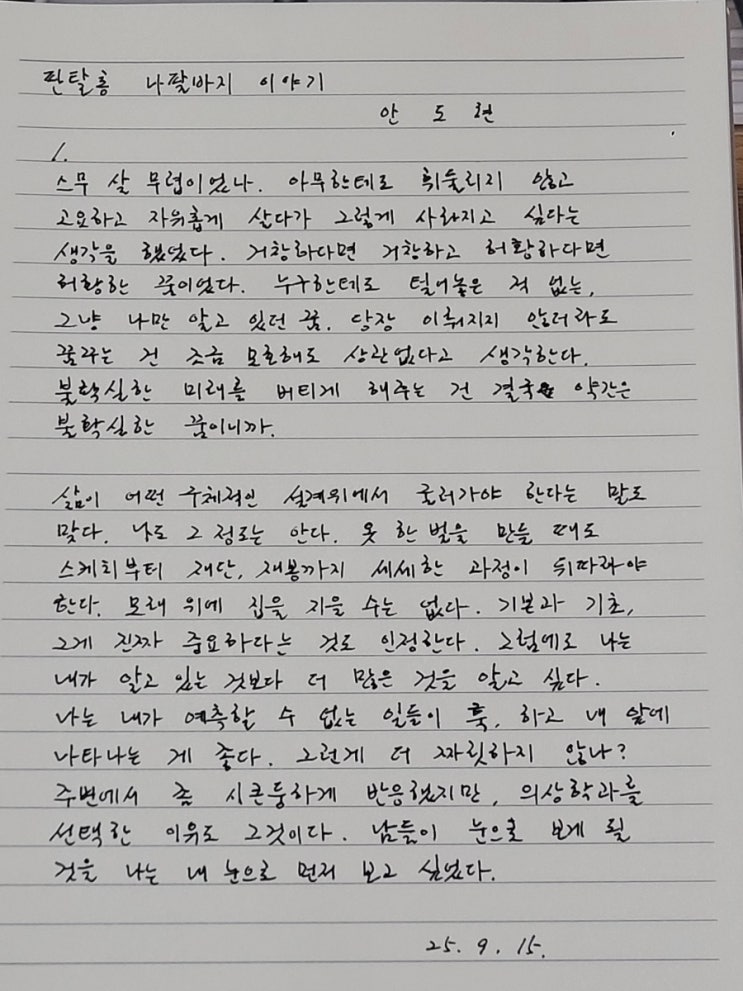 판탈롱 나팔바지 이야기
안 도 현
1.
스무 살 무렵이었나. 아무한테도 휘둘리지 않고
고요하고 자유롭게 살다가 그렇게 사라지고 싶다는
생각을 했었다. 거창하다면 거창하고 허황하다면
허황한 꿈이었다. 누구한테도 털어놓은 적 없는,
그냥 나만 알고 있던 꿈. 당장 이뤄지지 않더라도
꿈꾸는 건 조금 모호해도 상관없다고 생각한다.
불확실한 미래를 버티게 해주는 건 결국 약간은
불확실한 꿈이니까.
삶이 어떤 구체적인 설계위에서 굴러가야 한다는 말도
맞다. 나도 그 정도는 안다. 옷 한 벌을 만들 때도
스케치부터 재단, 재봉까지 세세한 과정이 뒤따라야
한다. 모래 위에 집을 지을 수는 없다. 기본과 기초,
그게 진짜 중요하다는 것도 인정한다. 그럼에도 나는
내가 알고 있는 것보다 더 많은 것을 알고 싶다.
나는 내가 예측할 수 없는 일들이 훅, 하고 내 앞에
나타나는 게 좋다. 그런게 더 짜릿하지 않나?
주변에서 좀 시큰둥하게 반응했지만, 의상학과를
선택한 이유도 그것이다. 남들이 눈으로 보게 될
것을 나는 내 눈으로 먼저 보고 싶었다.
25. 9. 15.